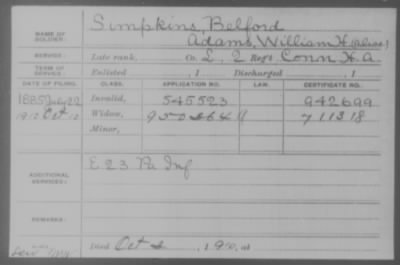 NAME OF SOLDIER: Simpkins, Belford
Adams, William H. (Alias)
SERVICE: Late rank, Co. L, 2 Reg't Conn H.A.
TERM OF SERVICE: Enlisted , 1 Discharged , 1
DATE OF FILING. CLASS. APPLICATION NO. LAW. CERTIFICATE NO.
1885 July 22 Invalid, 545523 942699
1910 Oct 12 Widow, 950464 711318
Minor,
ADDITIONAL SERVICES: E 23 Pa Inf
REMARKS:
Died Oct 2, 190